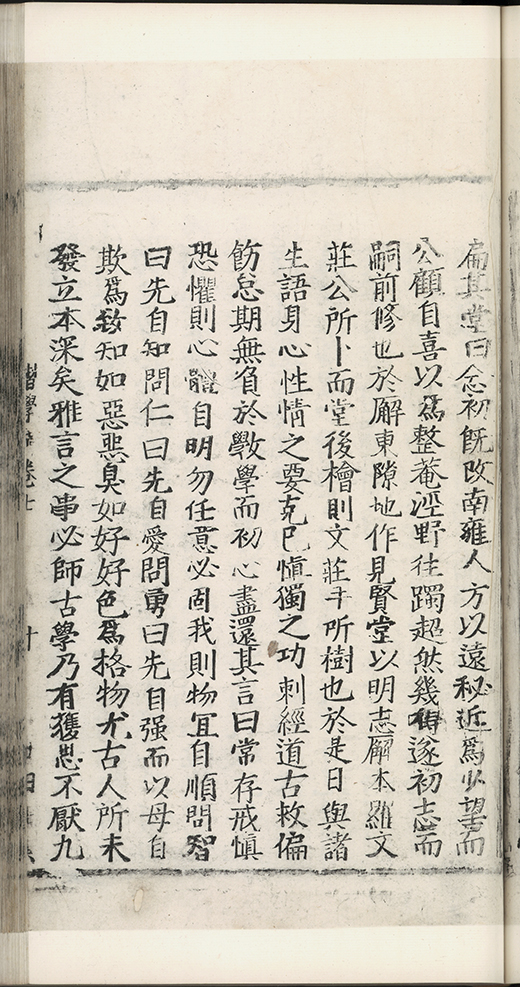 扁其堂曰念初既改南雍人方以遠秘近爲少望而
公顧自喜以爲整菴涇野往躅超然幾得遂初志而
嗣前修也於廨東隙地作見賢堂以明志廨本羅文
莊公所卜而堂後檜則文莊手所樹也於是日與諸
生語身心性情之要克已慎獨之功刺經道古救偏
飭怠期無負於斅學而初心盡還其言曰常存戒慎
恐懼則心體自明勿任意必固我則物宜自順問智
曰先自知問仁曰先自愛問勇曰先自强而以毋自
欺爲致知如惡惡臭如好好色爲格物尤古人所未
發立本深矣雅言之事必師古學乃有獲思不厭九
學 卷七
十